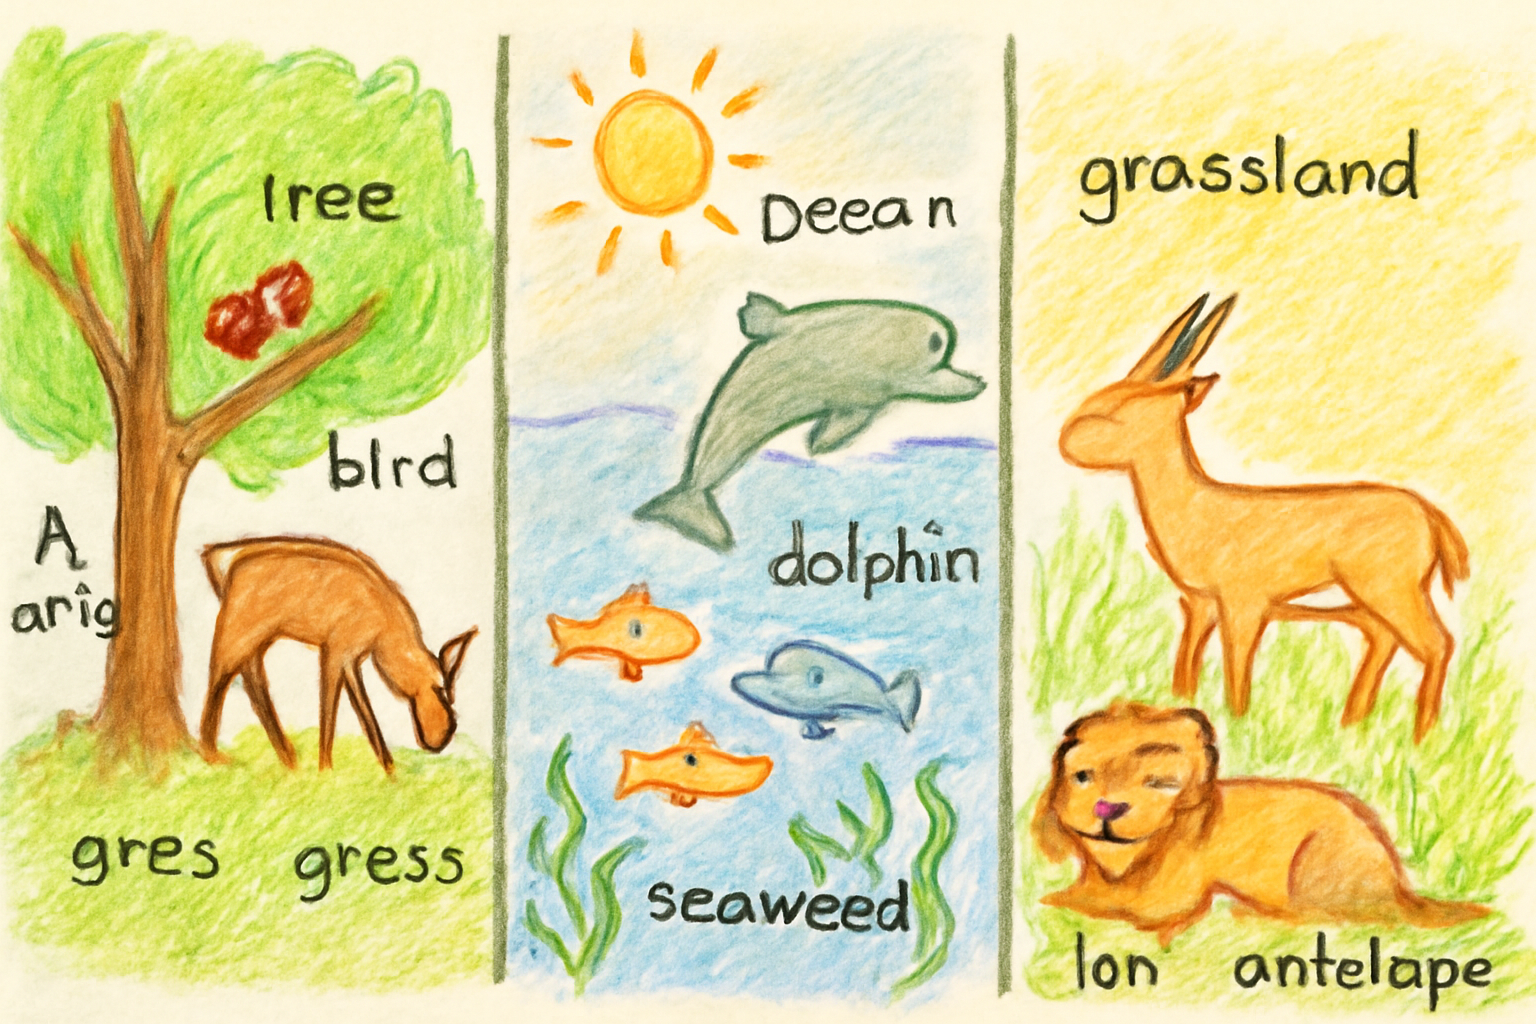 Iree
bIrd
A
arig
gres gress
Deean
dolphin
seaweed
grassland
lon antelape